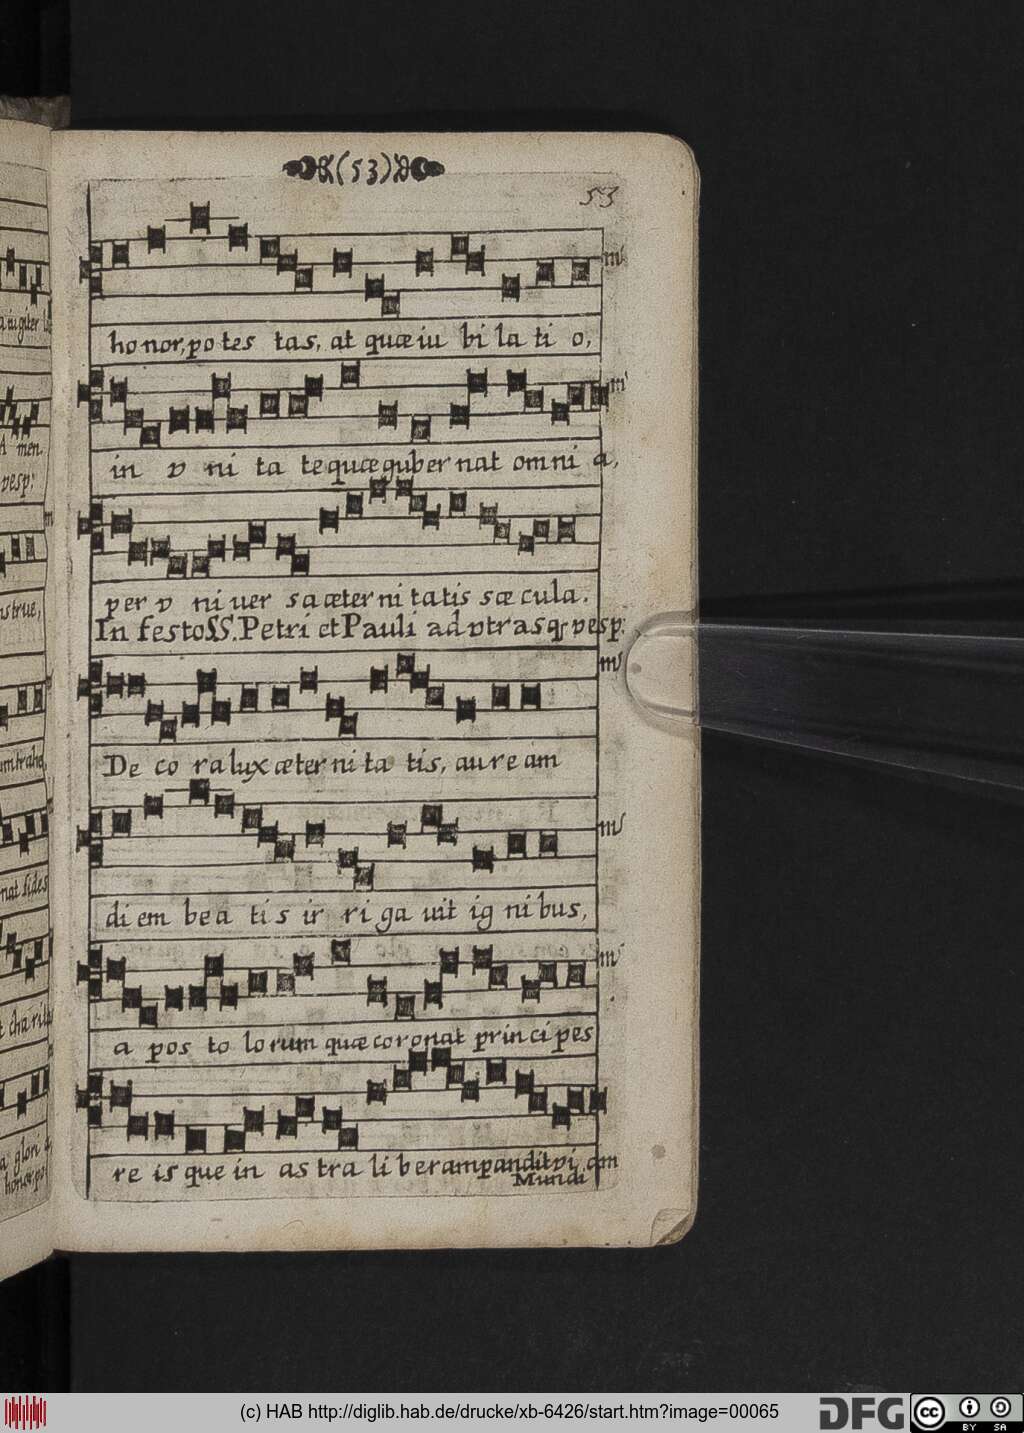 (53)
53
ho nor, po tes tas, at quæ iu bi la ti o,
in v ni ta te quæ guber nat omni a,
per v ni uer sa æter ni tatis sæ cula.
In festo SS. Petri et Pauli ad vtrasq; vesp:
De co ra lux æter ni ta tis, au re am
di em be a ti s ir ri ga uit ig ni bus,
a pos to lo rum quæ coronat princi pes
re is que in as tra li beram pandit vi am
Mundi
a iu giter
A men.
vesp:
nstrue,
um trahe,
nat fides
t charitas
a glori
honor, po
(c) HAB http://diglib.hab.de/drucke/xb-6426/start.htm?image=00065
DFG
cc
BY SA